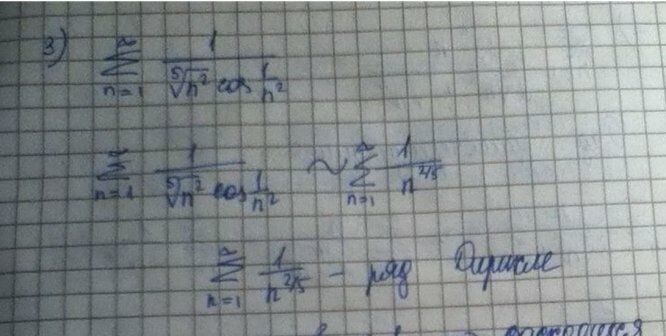 3) ∞ ∑ n=1 1 / ⁵√n² cos 1/n²
∞ ∑ n=1 1 / ⁵√n² cos 1/n² ~ ∞ ∑ n=1 1 / n^2/5
∞ ∑ n=1 1 / n^2/5 - ряд Дирихле